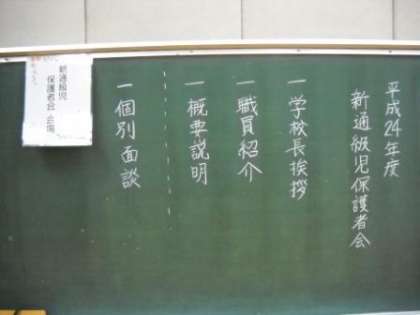 平成24年度
新通級児保護者会
一学校長挨拶
一職員紹介
一概要説明
一個別面談
新通級児
保護者会 会場